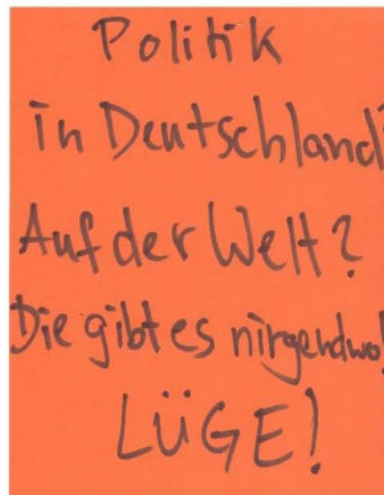 Politik
in Deutschland?
Auf der Welt?
Die gibt es nirgendwo!
LÜGE!